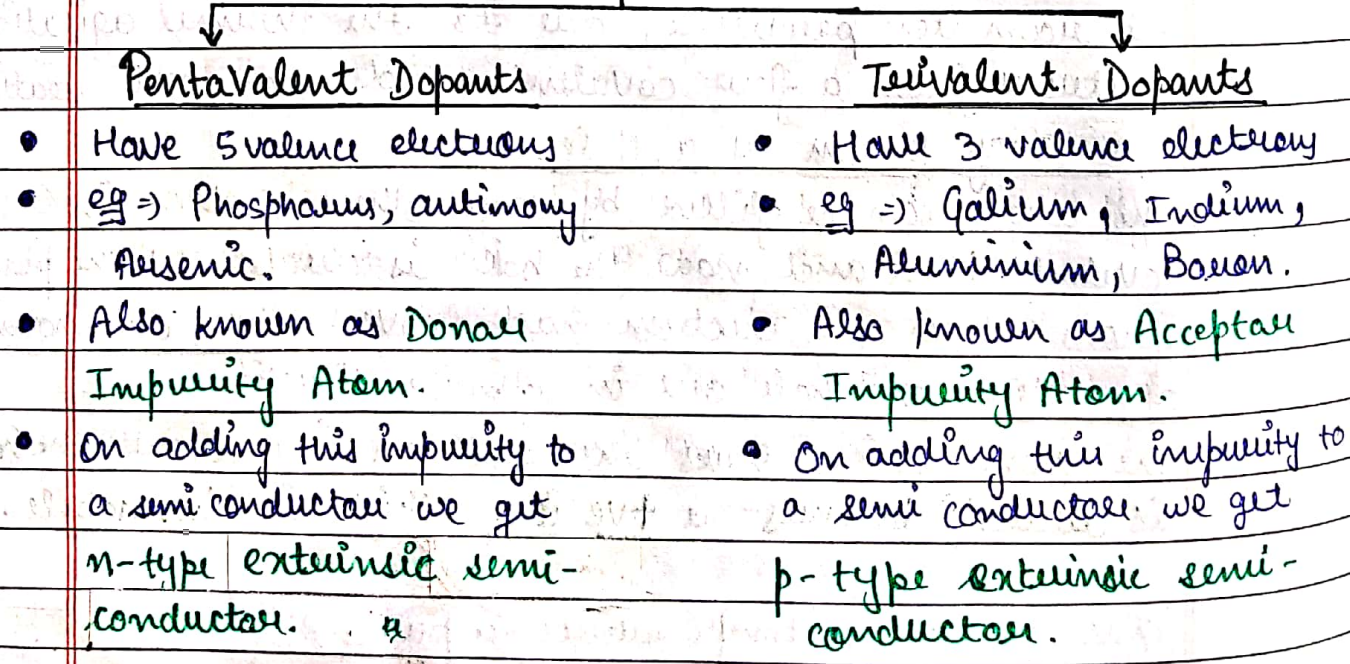 Pentavalent Dopants
Have 5 valence electrons
eg => Phosphorus, antimony
Arsenic.
Also known as Donor
Impurity Atom.
On adding this impurity to
a semi conductor we get
n-type extrinsic semi-
conductor.
Trivalent Dopants
Have 3 valence electrons
eg => Galium, Indium,
Aluminium, Boron.
Also known as Acceptor
Impurity Atom.
On adding this impurity to
a semi conductor. we get
p-type extrinsic semi-
conductor.